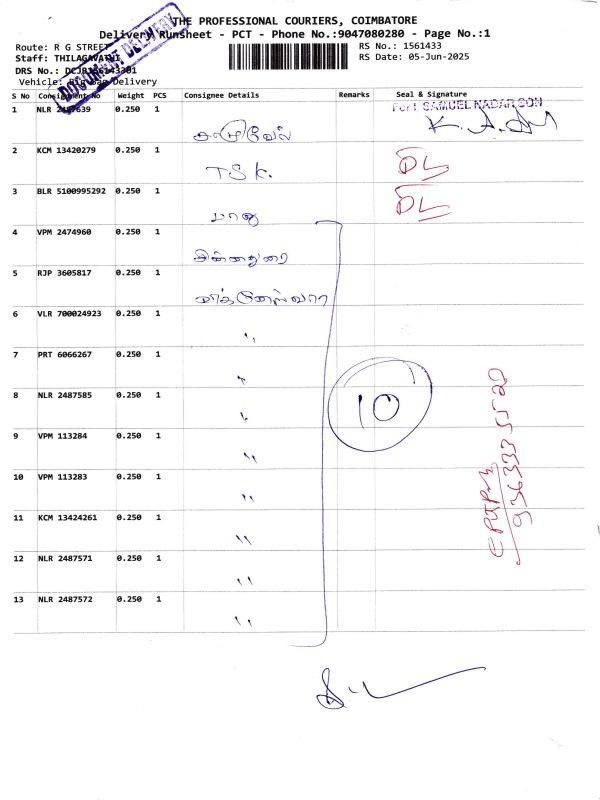 THE PROFESSIONAL COURIERS, COIMBATORE
Delivery Runsheet - PCT - Phone No.:9047080280 - Page No.:1
DOCUMENT DELIVERY
Route: R G STREET
RS No.: 1561433
Staff: THILAGAVATHI
RS Date: 05-Jun-2025
DRS No.:
Vehicle: Big Bag Delivery
S No Consignment No Weight PCS Consignee Details Remarks Seal & Signature
1 NLR 2487639 0.250 1 சாமுவேல் For I. SAMUEL NADAR SON
2 KCM 13420279 0.250 1 T.S.K. DL
3 BLR 5100995292 0.250 1 பாலு DL
4 VPM 2474960 0.250 1 சின்னதுரை
5 RJP 3605817 0.250 1
6 VLR 700024923 0.250 1 ''
7 PRT 6066267 0.250 1 ''
8 NLR 2487585 0.250 1 ''
9 VPM 113284 0.250 1 ''
10 VPM 113283 0.250 1 ''
11 KCM 13424261 0.250 1 ''
12 NLR 2487571 0.250 1 ''
13 NLR 2487572 0.250 1 ''
10